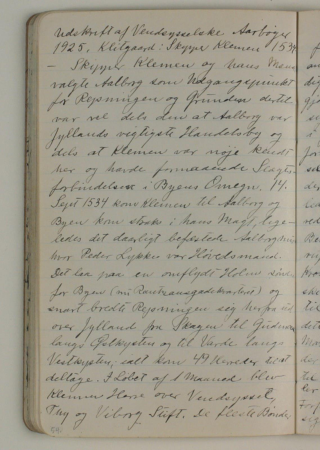 Udskrift af Vendsysselske Aarbøger
1925. Klitgaard: Skipper Klemen 1534
– Skipper Klemen og hans Mænd
valgte Aalborg som Udgangspunkt
for Rejsningen og Grunden dertil
var vel dels den at Aalborg var
Jyllands vigtigste Handelsby og
dels at Klemen var nøje kendt
her og havde formaaende Slægts
forbindelser i Byens Omegn. 14.
Sept 1534 kom Klemen til Aalborg og
Byen kom straks i hans Magt, lige-
ledes det daarligt befæstede Aalborghus
hvor Peder Lykke var Høvedsmand.
Det laa paa en omflydt Holm
for Byen og
snart bredte Rejsningen sig herfra ud
over Jylland fra Skagen til
langs Østkysten og til Varde langs
Vestkysten, ialt kom 49 Herreder til at
deltage. I Løbet af 1 Maaned blev
Klemen Herre over Vendsyssel,
Thy og Viborg Stift. De fleste Bønder